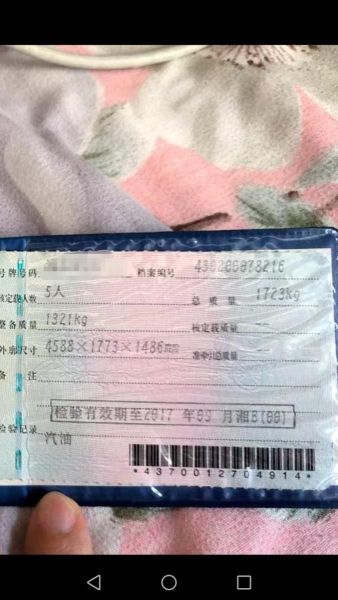 号牌号码 档案编号 430200078216
核定载人数 5人 总质量 1723kg
整备质量 1321kg 核定载质量 --
外廓尺寸 4588×1773×1486mm 准牵引总质量 --
备注
检验有效期至2017年09月湘B(00)
检验记录
汽油
*4370012704914*